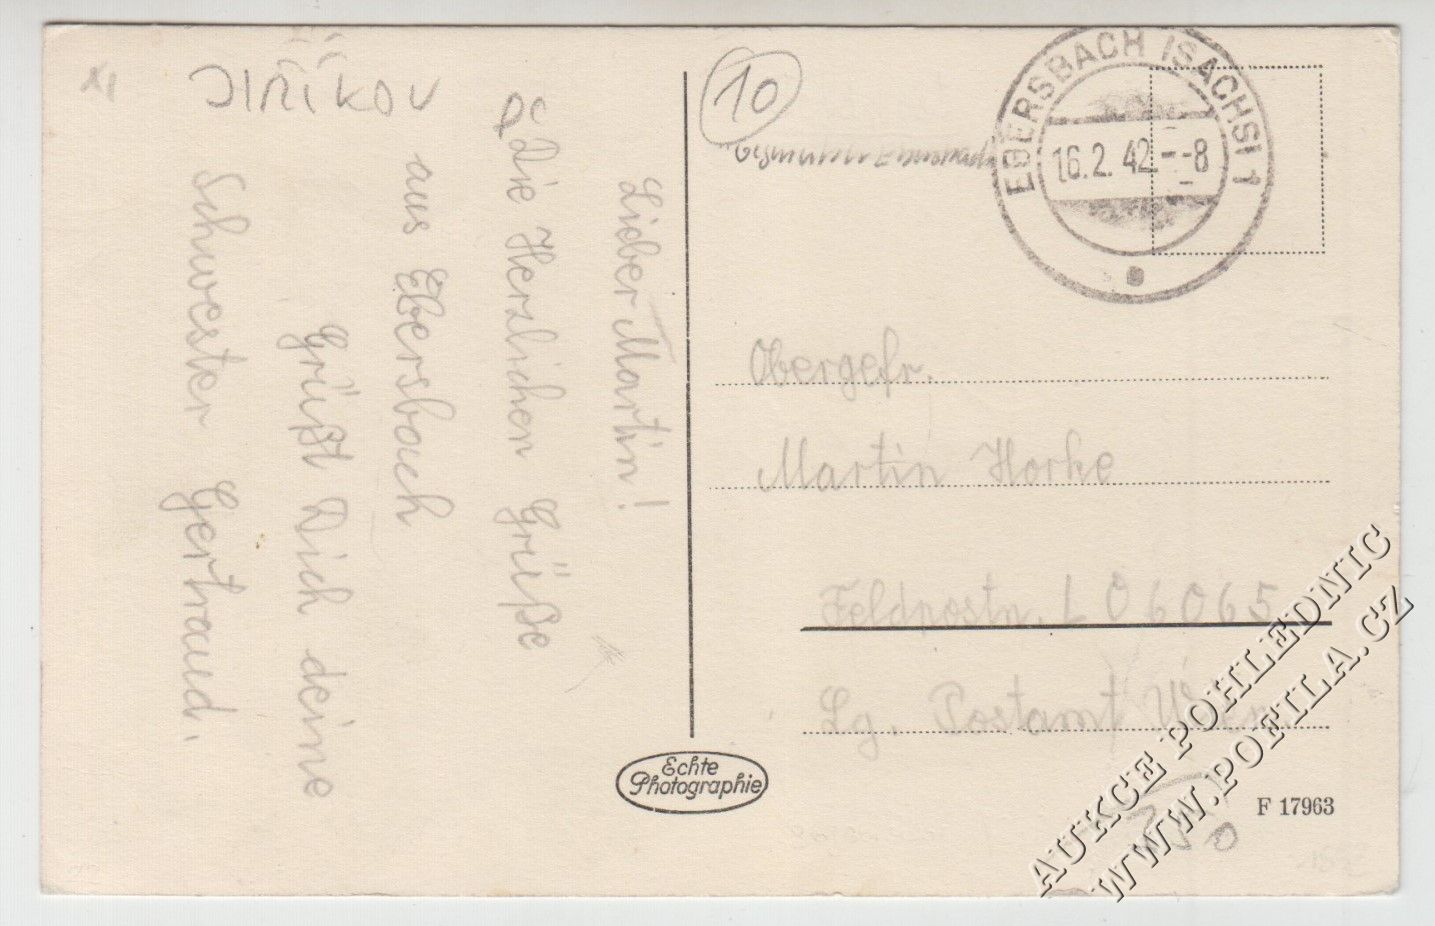 XI
JIŘÍKOV
10
EBERSBACH (SACHS) 1
16.2.42.-8
Lieber Martin!
Die Herzlichen Grüße
aus Ebersbach
Grüßt Dich deine
Schwester Gertraud.
Obergefr.
Martin Horke
Feldpostn. L 06065
Lg. Postamt Wien
Echte
Photographie
F 17963
AUKCE POHLEDNIC
WWW.POFILA.CZ